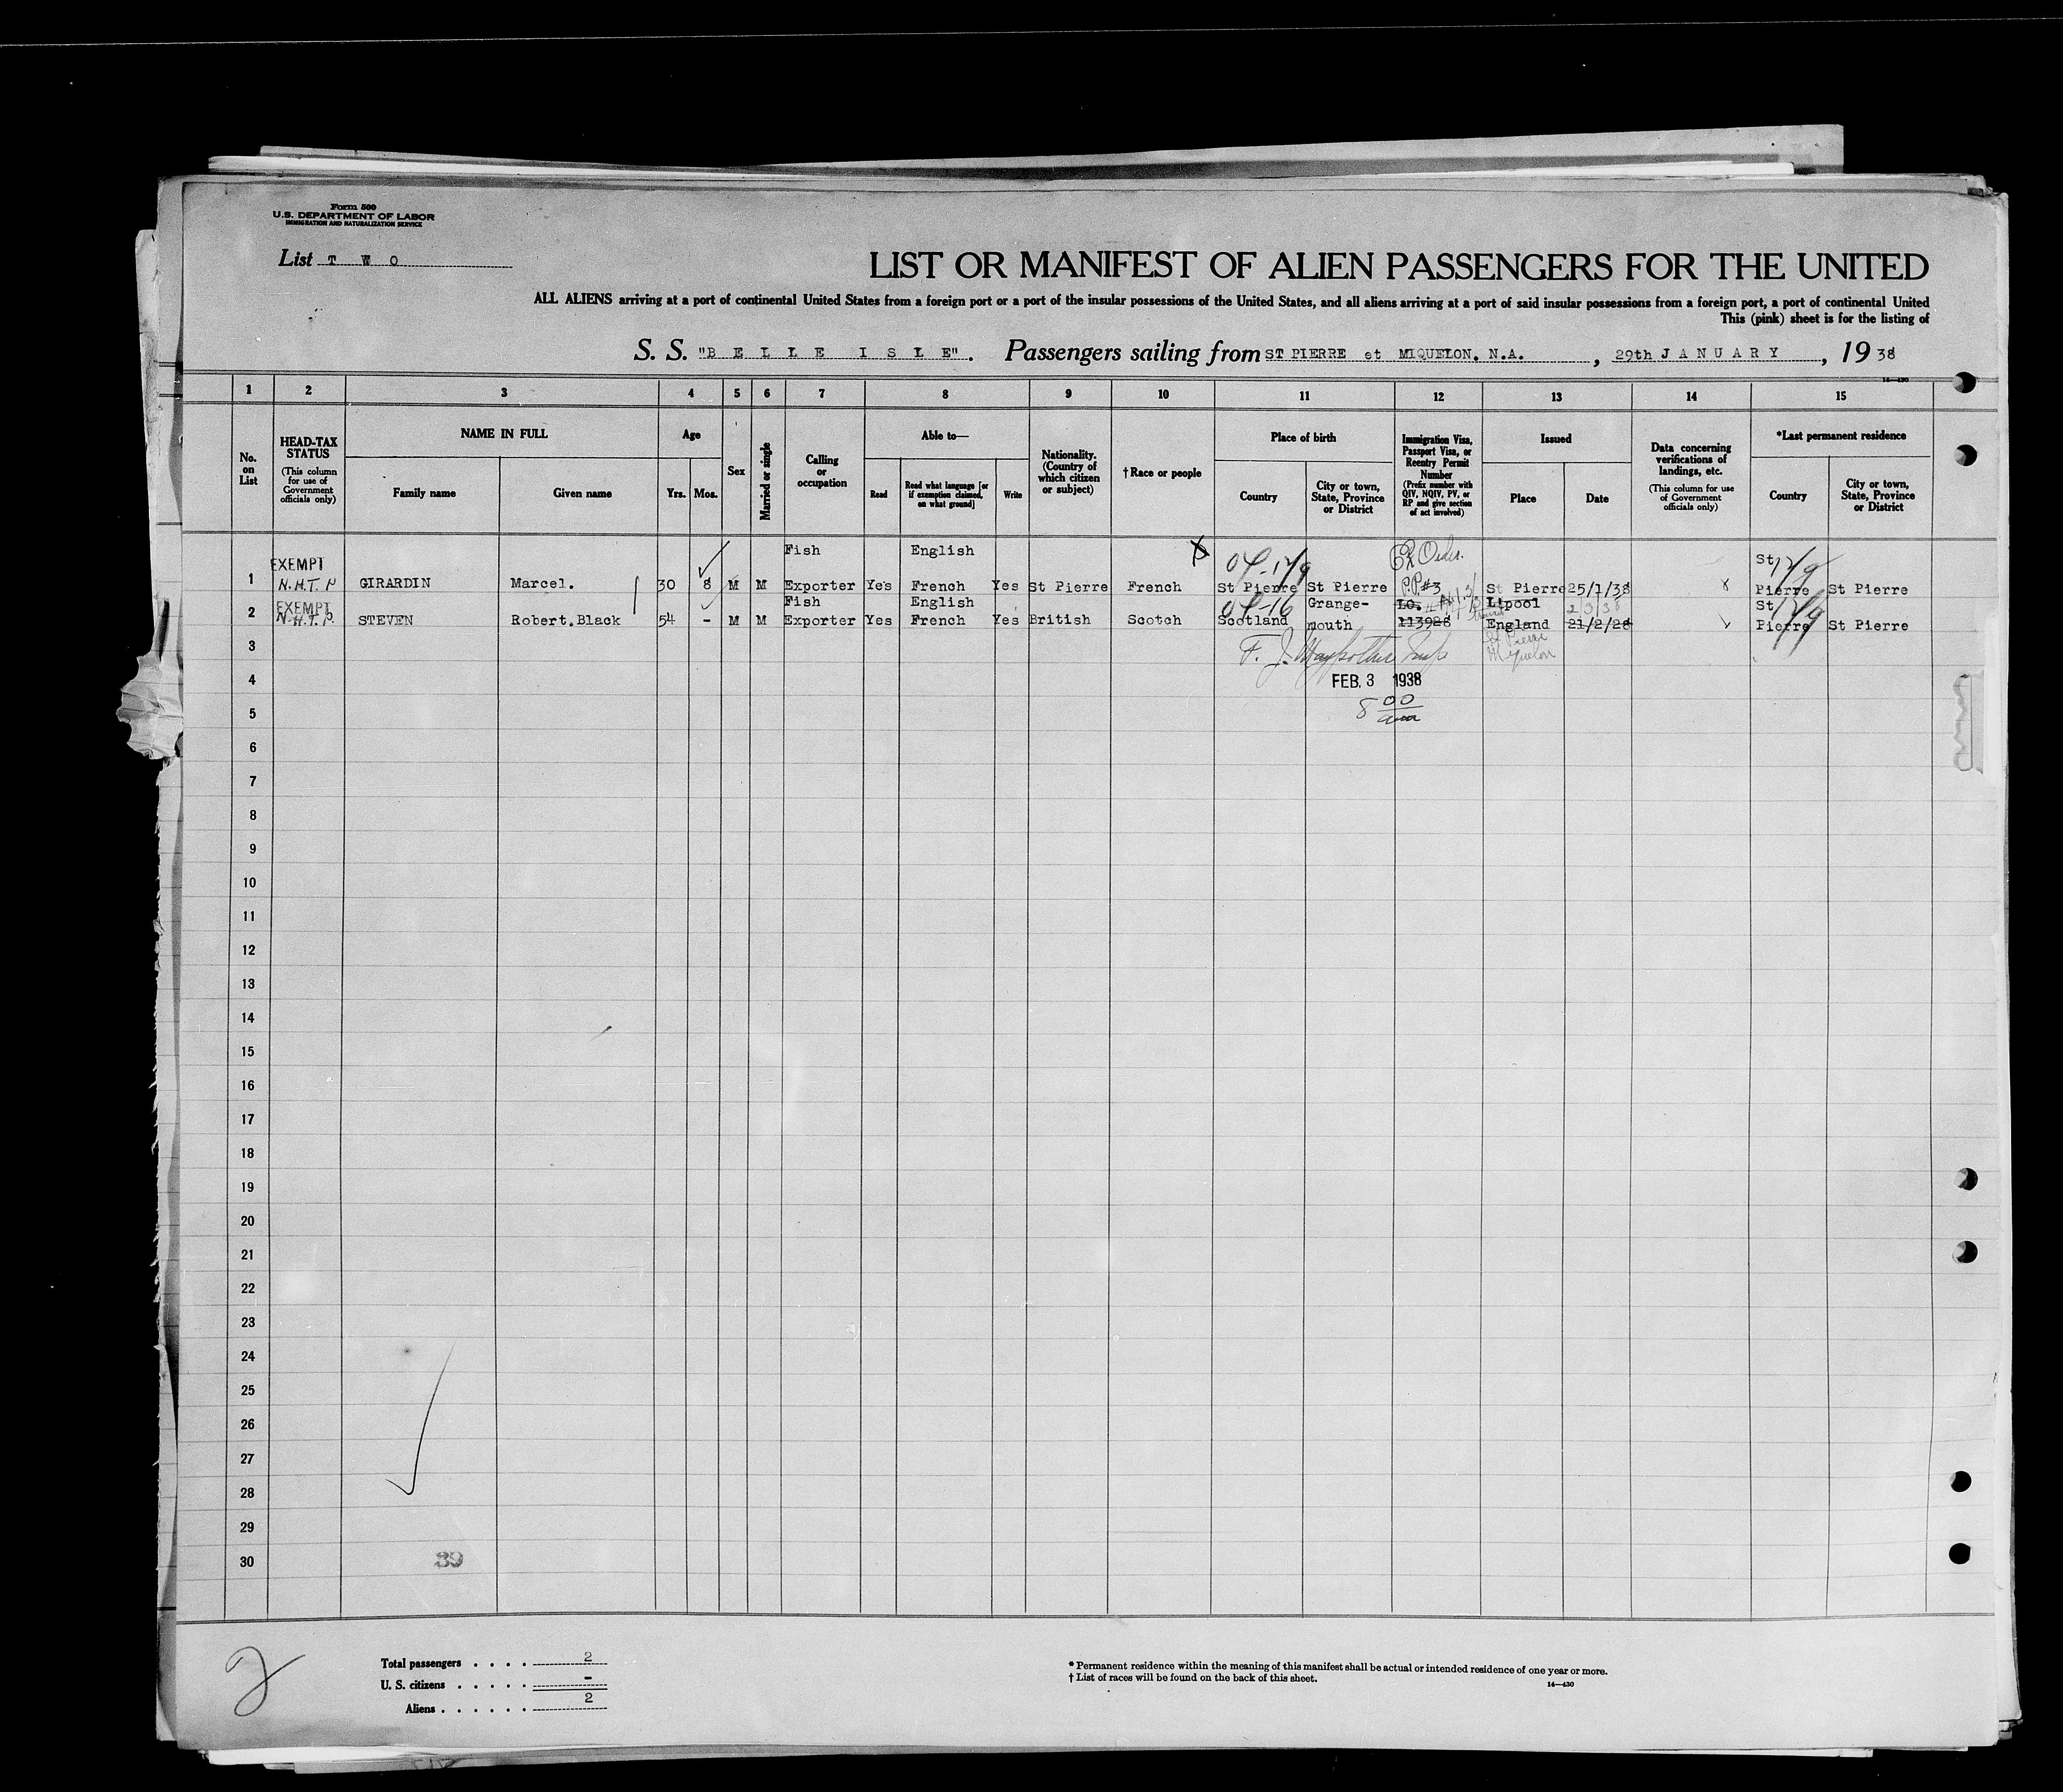 Form 500
U.S. DEPARTMENT OF LABOR
IMMIGRATION AND NATURALIZATION SERVICE
List T W O
LIST OR MANIFEST OF ALIEN PASSENGERS FOR THE UNITED
ALL ALIENS arriving at a port of continental United States from a foreign port or a port of the insular possessions of the United States, and all aliens arriving at a port of said insular possessions from a foreign port, a port of continental United
This (pink) sheet is for the listing of
S. S. "B E L L E I S L E". Passengers sailing from ST PIERRE et MIQUELON. N.A. , 29th J A N U A R Y , 19 38
14—430
1 2 3 4 5 6 7 8 9 10 11 12 13 14 15
No. on List
HEAD-TAX STATUS (This column for use of Government officials only)
NAME IN FULL
Family name
Given name
Age
Yrs. Mos.
Sex
Married or single
Calling or occupation
Able to—
Read
Read what language [or if exemption claimed, on what ground]
Write
Nationality. (Country of which citizen or subject)
† Race or people
Place of birth
Country
City or town, State, Province or District
Immigration Visa, Passport Visa, or Reentry Permit Number (Prefix number with QIV, NQIV, PV, or RP and give section of act involved)
Issued
Place
Date
Data concerning verifications of landings, etc. (This column for use of Government officials only)
*Last permanent residence
Country
City or town, State, Province or District
EXEMPT Fish English Ex Order. St
1 N.H.T. GIRARDIN Marcel. 30 8 M M Exporter Yes French Yes St Pierre French St Pierre St Pierre P.P.#3 St Pierre 25/1/38 Pierre St Pierre
EXEMPT Fish English 04-16 Grange- I.O. L'pool 2/3/38 St
2 N.H.T. STEVEN Robert.Black 54 - M M Exporter Yes French Yes British Scotch Scotland mouth 113928 England 21/2/28 Pierre St Pierre
3 F. J. St Pierre Miquelon
4 FEB. 3 1938
5 8 00
6
7
8
9
10
11
12
13
14
15
16
17
18
19
20
21
22
23
24
25
26
27
28
29
30 39
2
Total passengers . . . . 2
U. S. citizens . . . . . -
Aliens . . . . . . 2
* Permanent residence within the meaning of this manifest shall be actual or intended residence of one year or more.
† List of races will be found on the back of this sheet.
14—430